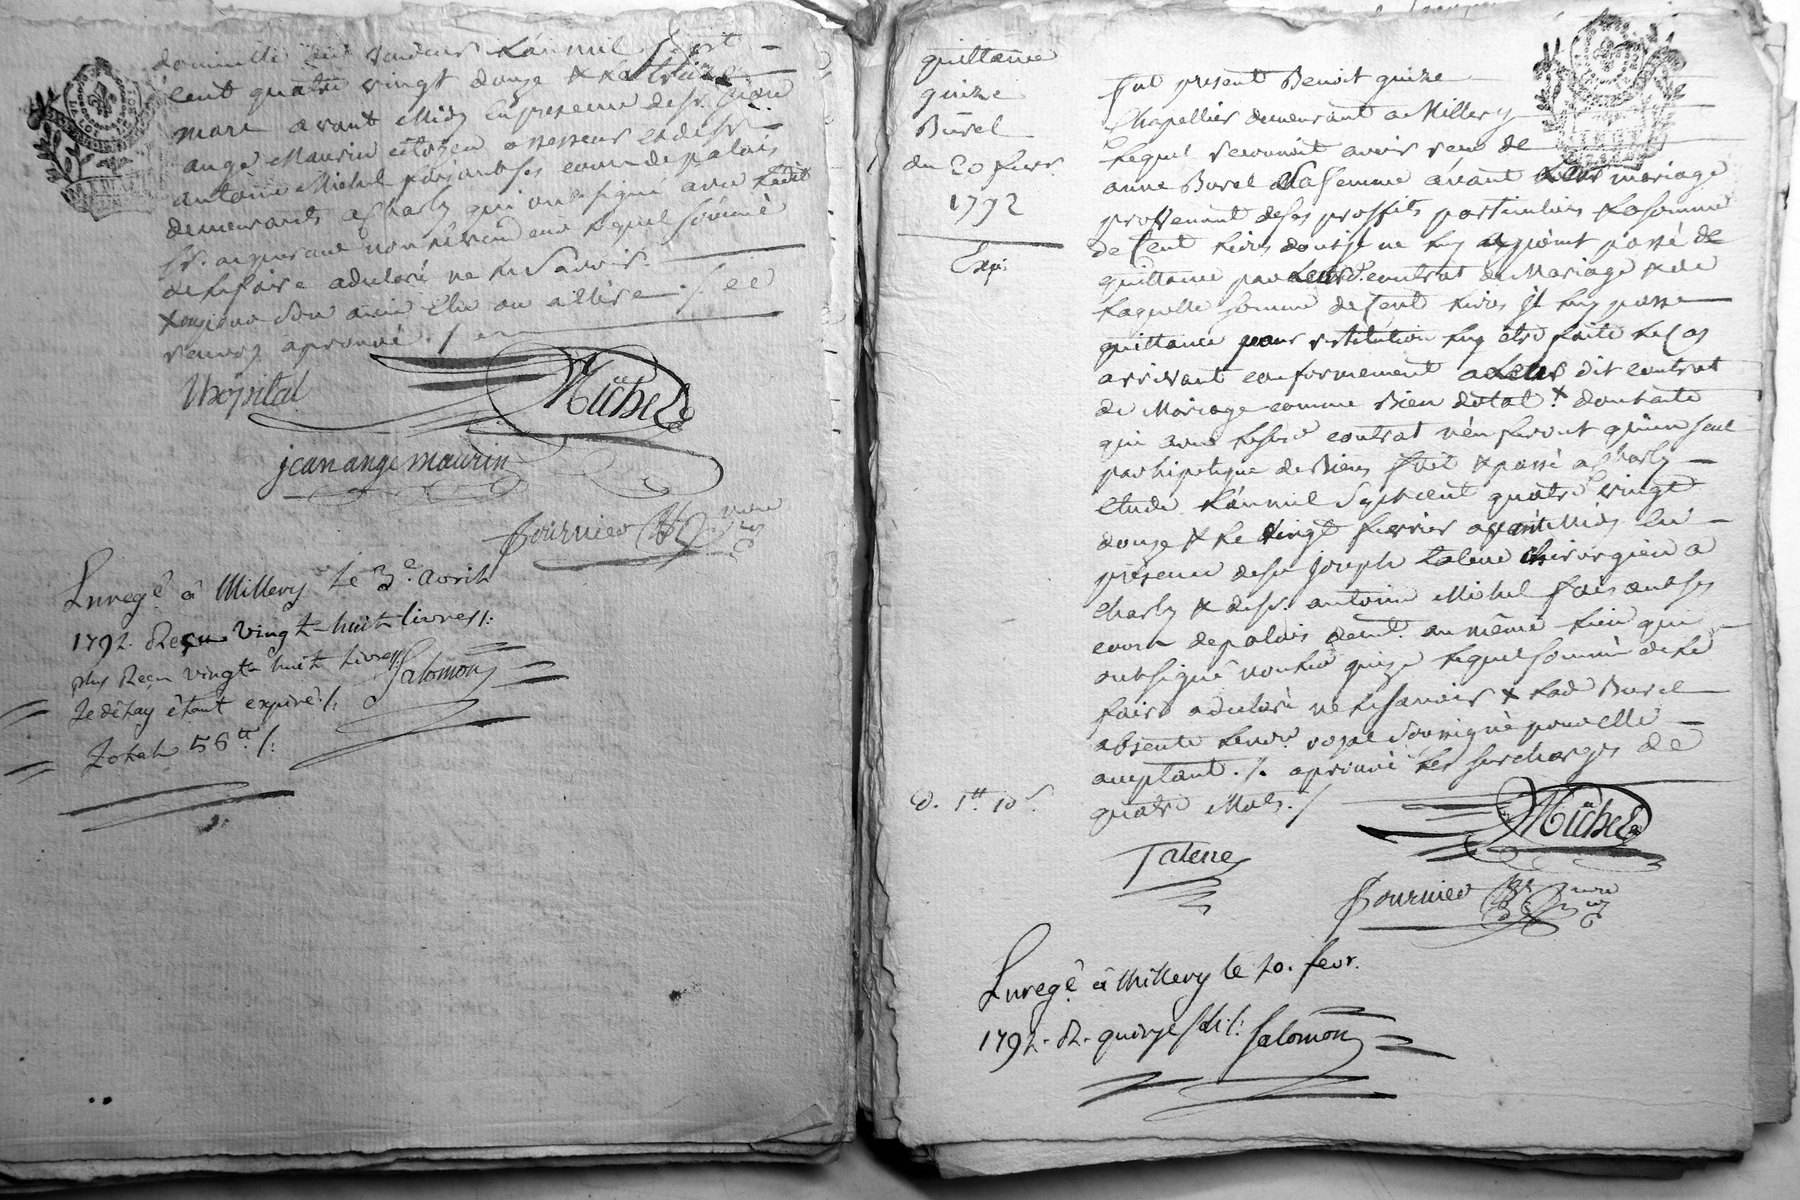 domicille du vendeur L'an mil sept
cent quatre vingt douze & le treize
mars avant Midy En presence de sr. jean
ange Maurin citoyen assesseur et de sr.
antoine Michel faisant ses cours de palais
demeurants a Charly qui ont signé avec ledit
sr. acquereur non le vendeur Lequel sommé
de Le faire a declaré ne Le Savoir.
son amie Elu ou
renvoy aprouvé ./.
Lhopital
Michel
jean ange maurin
fournier
Enregé à Millery le 3e. avril
1792. Reçu vingt-huit livres /.
plus Reçu vingt huit Livres
Salomon
Le délay étant expiré /.
Total 56tt /.
quittance
guize
Burel
du 20 fevr.
1792
Exp:
fut present Benoit guize
Chapellier demeurant a Millery
Lequel reconnoit avoir reçu de
anne Burel sa femme avant leur mariage
provenant de ses proffits particuliers La somme
de Cent Livres dont il ne luy a point passé de
quittance par leur contrat de Mariage & de
Laquelle somme de Cent Livres il luy passe
quittance pour restitution luy être faite Le Cas
arrivant conformement a leur dit contrat
de Mariage comme Bien dotal x dont acte
qui avec Led. contrat n'en feront qu'un seul
par hipoteque de Biens fait & passé a Charly
Etude L'an mil sept cent quatre vingt
douze & le vingt fevrier avant Midy En
presence de sr joseph Talene chirurgien a
Charly & de sr. antoine Michel faisant ses
cours de palais demt. au même Lieu qui
ont signé non led guize Lequel sommé de Le
faire a declaré ne Le savoir & lad Burel
absente Le nore. royal soussigné pour elle
acceptant ./. aprouvé les surcharges de
quatre Mots ./
d. 1tt 10s
Michel
Talene
fournier
Enregé à Millery le 20. fevr.
1792. R. quinze sols /. Salomon